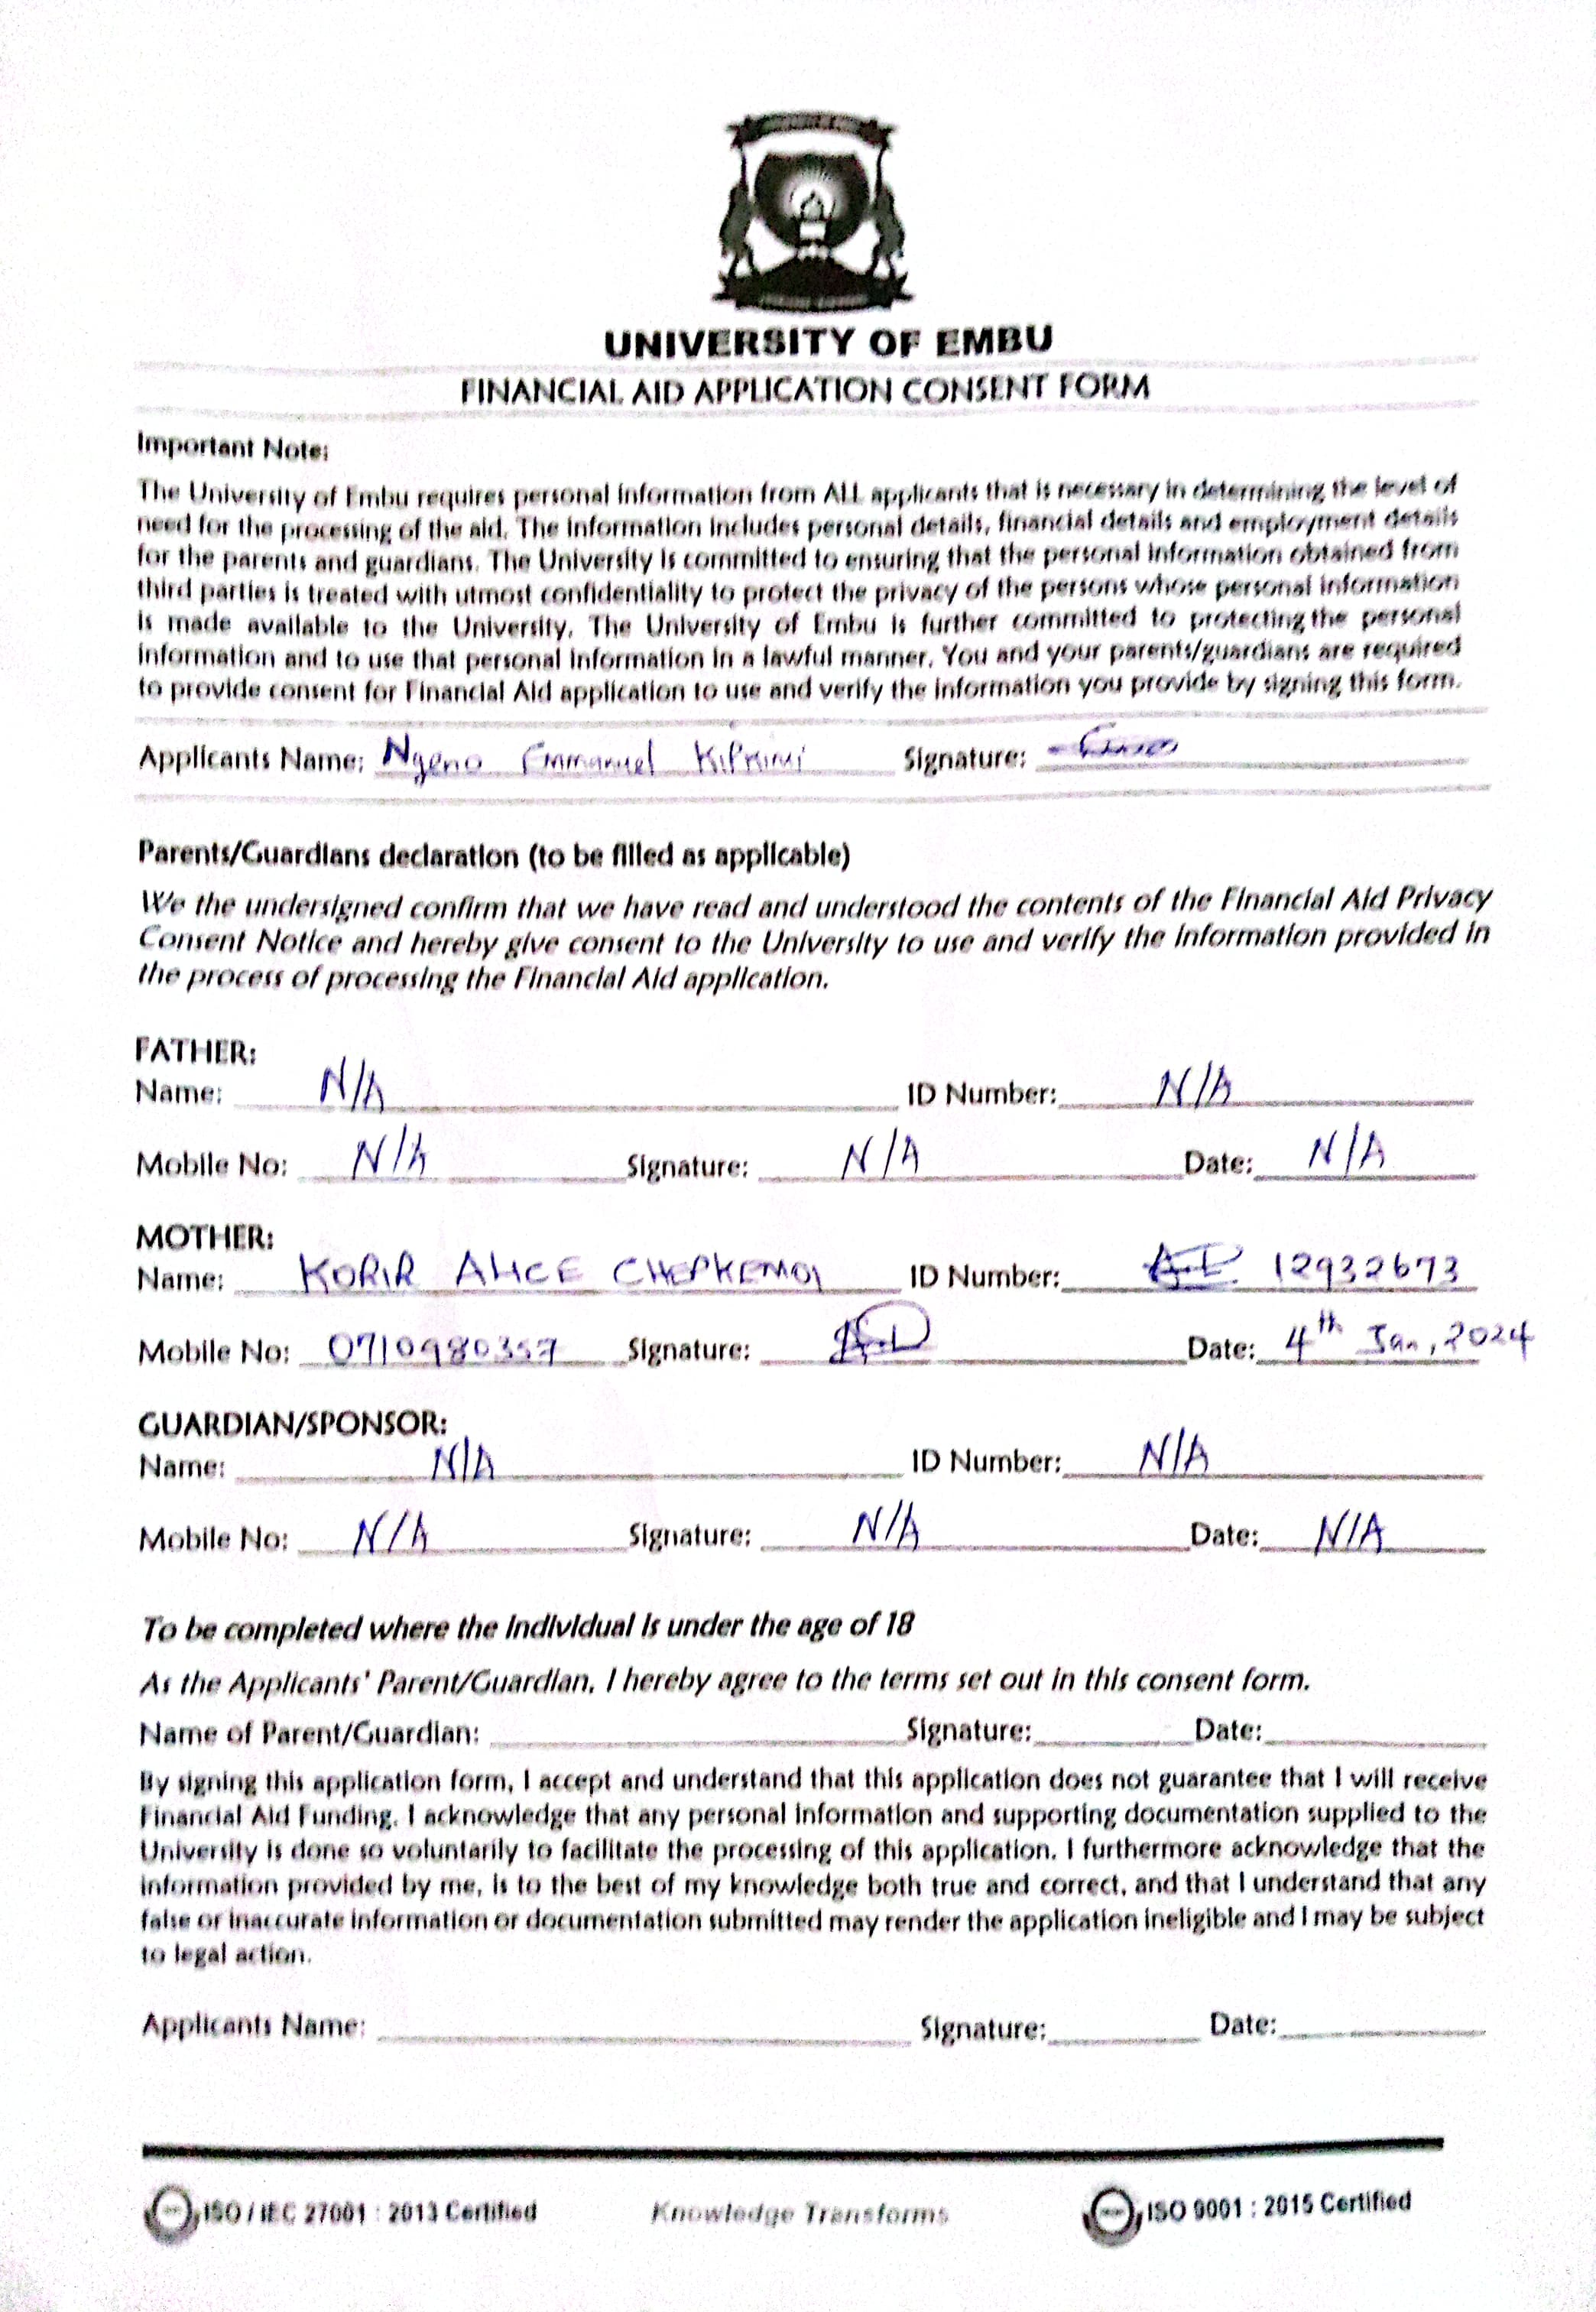 UNIVERSITY OF EMBU
FINANCIAL AID APPLICATION CONSENT FORM
Important Note:
The University of Embu requires personal information from ALL applicants that is necessary in determining the level of
need for the processing of the aid. The information includes personal details, financial details and employment details
for the parents and guardians. The University is committed to ensuring that the personal information obtained from
third parties is treated with utmost confidentiality to protect the privacy of the persons whose personal information
is made available to the University. The University of Embu is further committed to protecting the personal
information and to use that personal information in a lawful manner. You and your parents/guardians are required
to provide consent for Financial Aid application to use and verify the information you provide by signing this form.
Applicants Name: Ngeno Emmanuel Signature:
Parents/Guardians declaration (to be filled as applicable)
We the undersigned confirm that we have read and understood the contents of the Financial Aid Privacy
Consent Notice and hereby give consent to the University to use and verify the information provided in
the process of processing the Financial Aid application.
FATHER:
Name: N/A ID Number: N/A
Mobile No: N/A Signature: N/A Date: N/A
MOTHER:
Name: KORIR ALICE CHEPKEMOI ID Number: 12932673
Mobile No: 0710980357 Signature: Date: 4th Jan, 2024
GUARDIAN/SPONSOR:
Name: N/A ID Number: N/A
Mobile No: N/A Signature: N/A Date: N/A
To be completed where the individual is under the age of 18
As the Applicants' Parent/Guardian, I hereby agree to the terms set out in this consent form.
Name of Parent/Guardian: Signature: Date:
By signing this application form, I accept and understand that this application does not guarantee that I will receive
Financial Aid Funding. I acknowledge that any personal information and supporting documentation supplied to the
University is done so voluntarily to facilitate the processing of this application. I furthermore acknowledge that the
information provided by me, is to the best of my knowledge both true and correct, and that I understand that any
false or inaccurate information or documentation submitted may render the application ineligible and I may be subject
to legal action.
Applicants Name: Signature: Date:
ISO / IEC 27001 : 2013 Certified Knowledge Transforms ISO 9001 : 2015 Certified